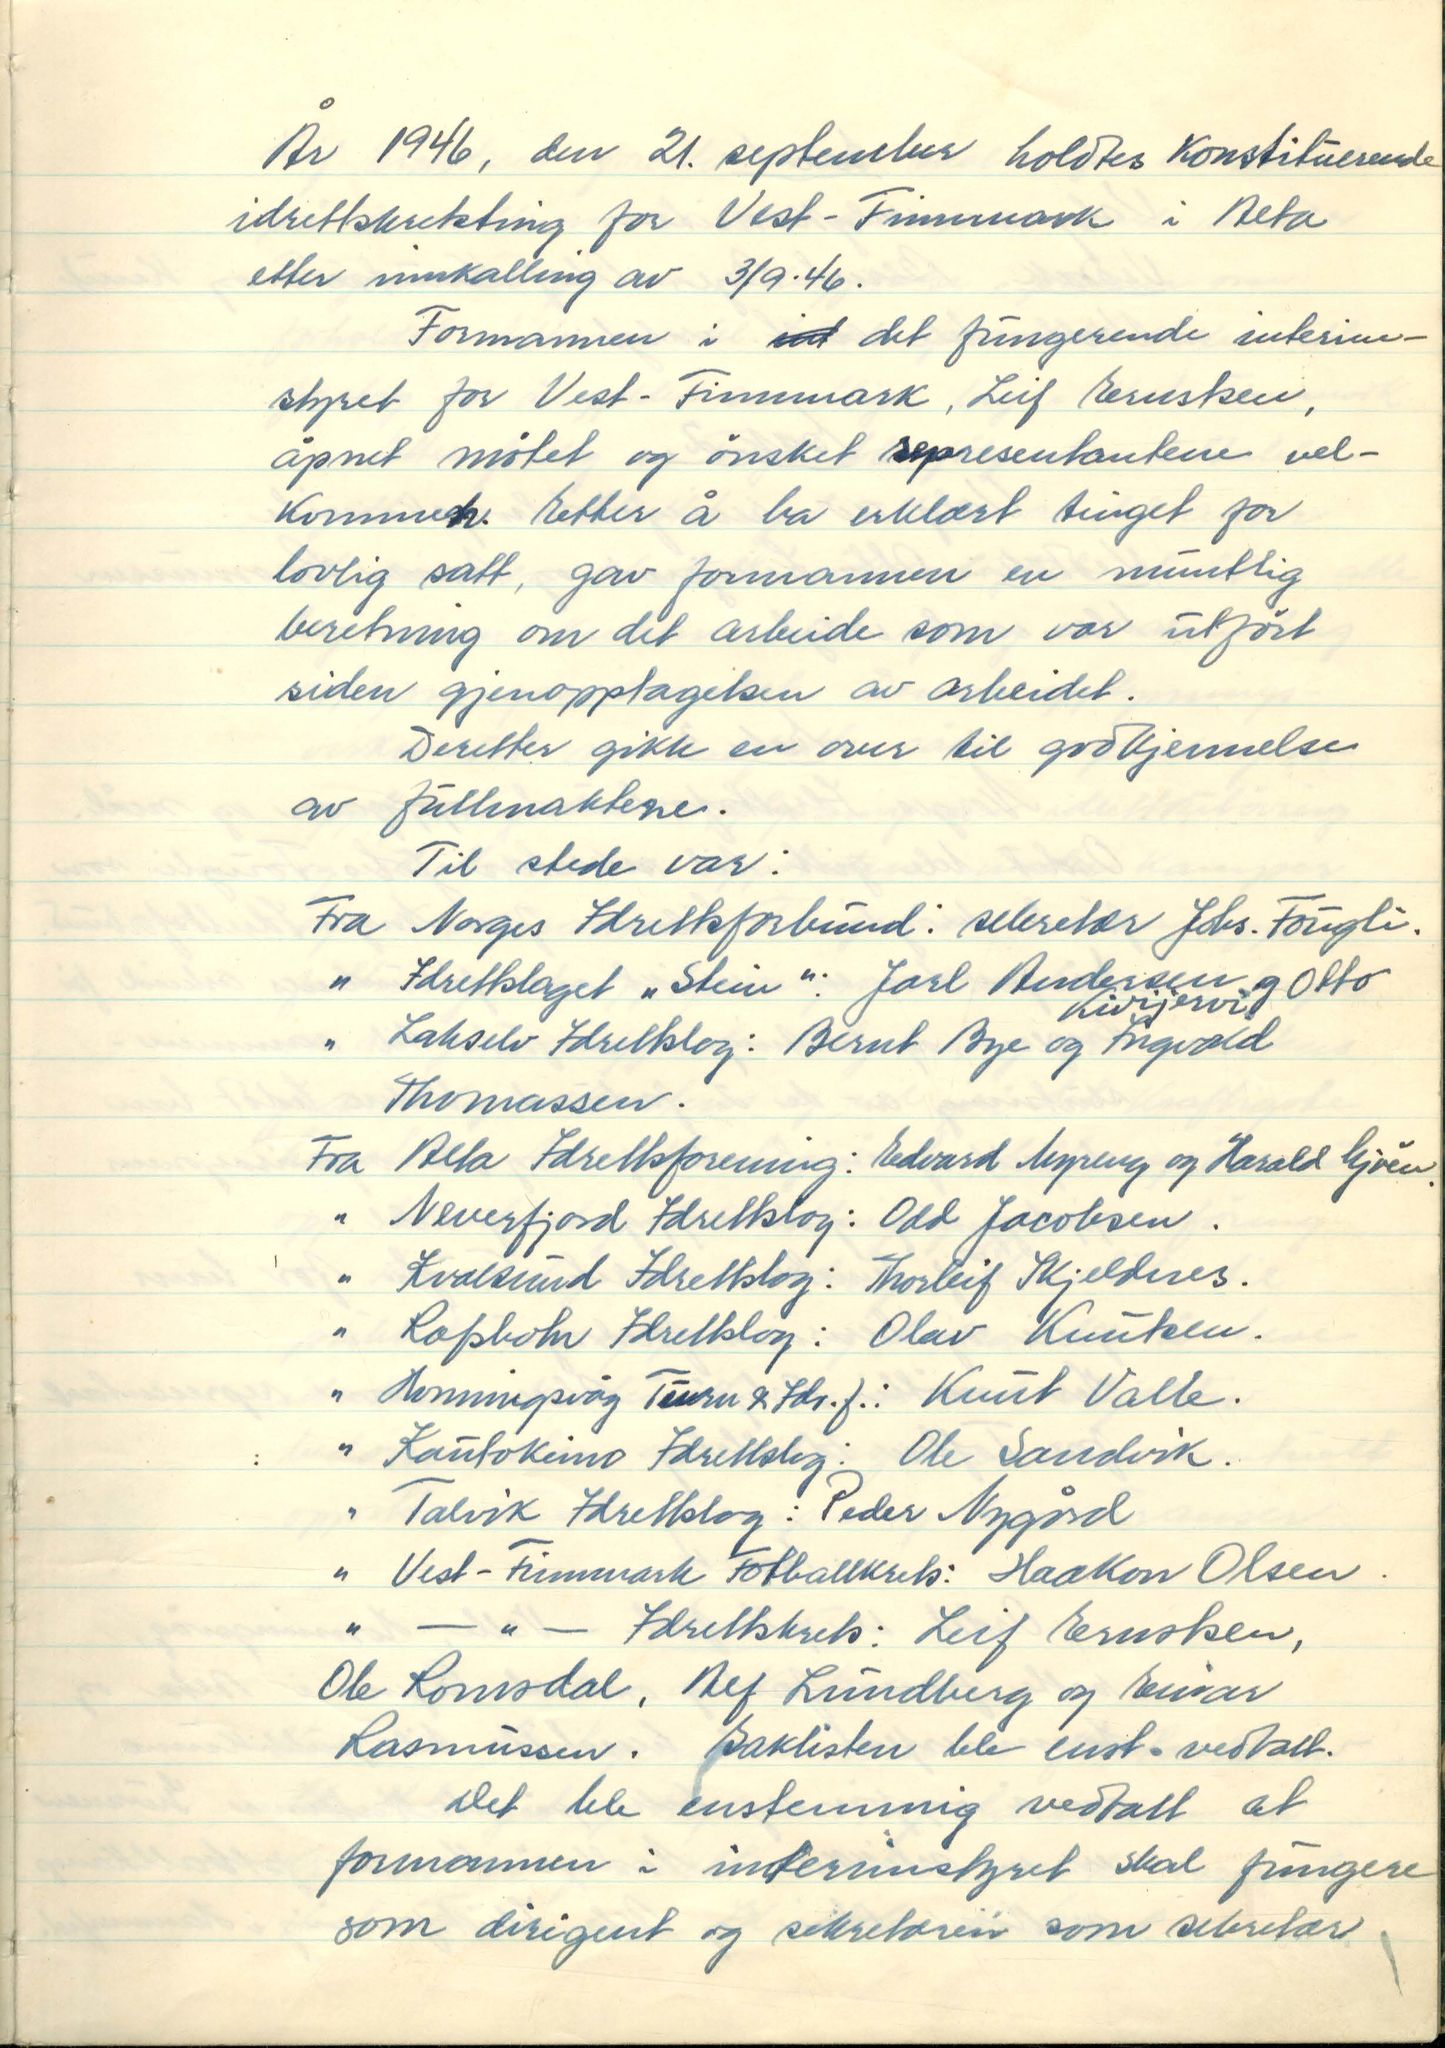 År 1946, den 21. september holdtes konstituerende
idrettskretsting for Vest-Finnmark i Alta
etter innkalling av 3/9.46.
Formannen i det fungerende interim-
styret for Vest-Finnmark, Leif Ernstsen,
åpnet møtet og ønsket representantene vel-
kommen. Etter å ha erklært tinget for
lovlig satt, gav formannen en muntlig
beretning om det arbeide som var utført
siden gjenopptagelsen av arbeidet.
Deretter gikk en over til godkjennelse
av fullmaktene.
Til stede var:
Fra Norges Idrettsforbund: sekretær Johs. Fougli.
" Idrettslaget „Stein": Jarl Andersen og Otto
Kivijervi
" Lakselv Idrettslag: Bernt Bye og Ingvald
Thomassen.
Fra Alta Idrettsforening: Edvard Myreng og Harald Gjøen.
" Neverfjord Idrettslag: Odd Jacobsen.
" Kvalsund Idrettslag: Thorleif Skjeldnes.
" Rafsbotn Idrettslag: Olav Knutsen.
" Honningsvåg Turn & Idr.f.: Knut Valle.
" Kautokeino Idrettslag: Ole Sandvik.
" Talvik Idrettslag: Peder Nygård
" Vest-Finnmark Fotballkrets: Haakon Olsen.
" — " — Idrettskrets: Leif Ernstsen,
Ole Romsdal, Alf Lundberg og Einar
Rasmussen. Saklisten ble enst. vedtatt.
Det ble enstemmig vedtatt at
formannen i interimstyret skal fungere
som dirigent og sekretæren som sekretær